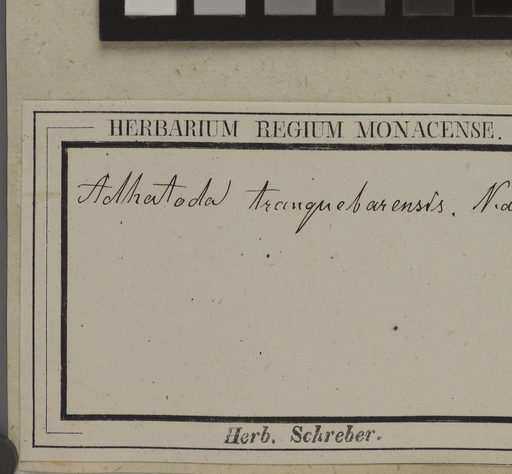 HERBARIUM REGIUM MONACENSE.
Adhatoda tranquebarensis.
Herb. Schreber.